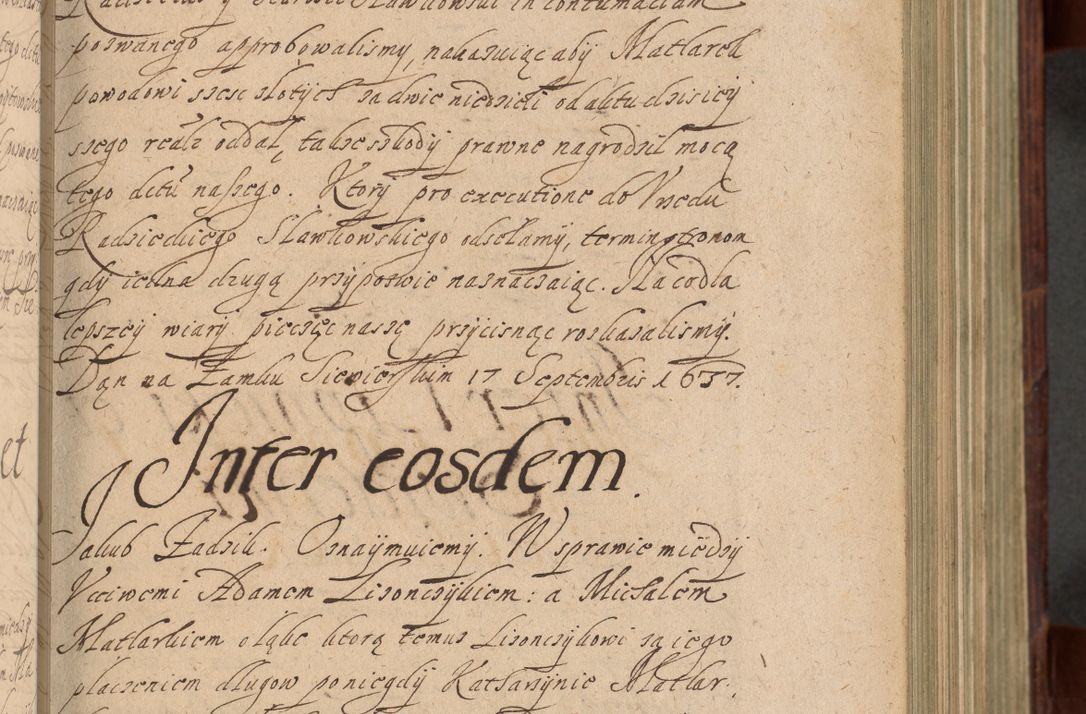 poswanego approbowalismy, nakazuiąc aby Matlarek
powodowi szesc złotych za dwie niedzieli od aktu dzisiey
szego realr oddał, takze szkody prawne nagrodził mocą
tego dctu naszego. Ktory pro executione do Vrzedu
Radzieckiego Sławkowskiego odsełamy, termin
gdy iedna drugą przypozwie naznaczaiąc. Na co dla
lepszey wiary pieczęc naszę przycisnąc roskazalismy.
Dąn na Zamku Siewierskim 17 Septembris 1637.
Inter eosdem.
Jakub Zadzik. Oznaymuiemy. W sprawie między
Vcciwemi Adamem Lisonczykiem: a Michałem
Matlarkiem o łąke ktorą temus Lisonczykowi są iego
płaczeniem długow poniegdy Katharzynie Matlar: